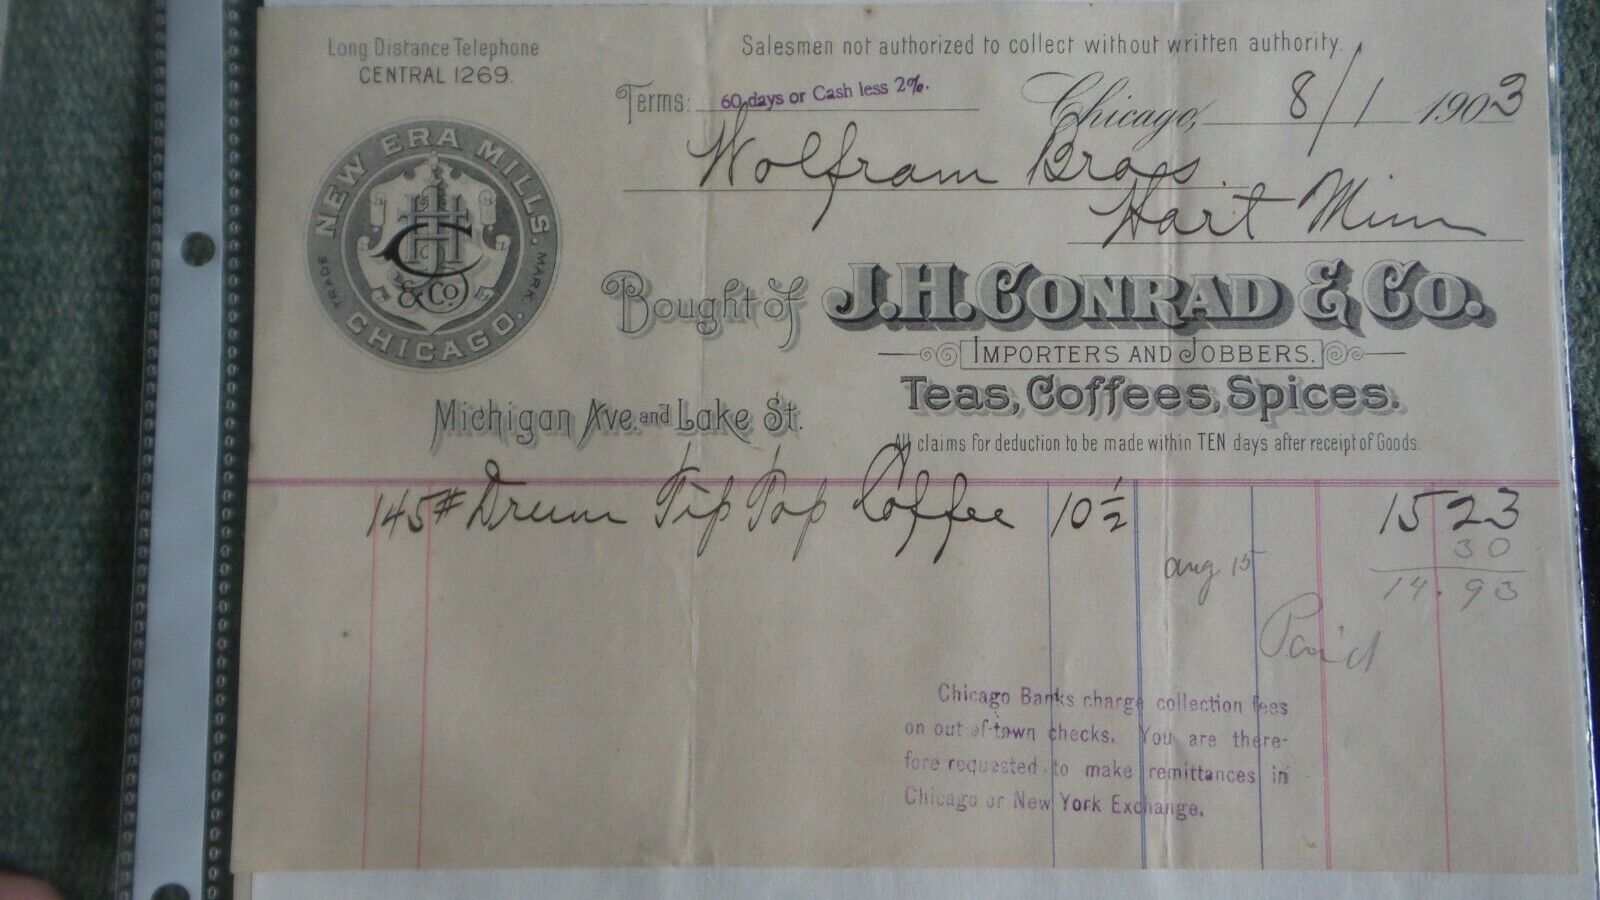 Long Distance Telephone
CENTRAL 1269.
Salesmen not authorized to collect without written authority.
Terms: 60 days or Cash less 2%.
Chicago, 8/1 1903
Wolfram Bros.
Hart Minn
NEW ERA MILLS.
TRADE MARK.
CHICAGO.
JHC
& Co
Bought of J.H. CONRAD & CO.
IMPORTERS AND JOBBERS.
Teas, Coffees, Spices.
Michigan Ave. and Lake St.
All claims for deduction to be made within TEN days after receipt of Goods.
145# Drum Tip Top Coffee 10 1/2 15 23
30
aug 15 14.93
Paid
Chicago Banks charge collection fees
on out-of-town checks. You are there-
fore requested to make remittances in
Chicago or New York Exchange.